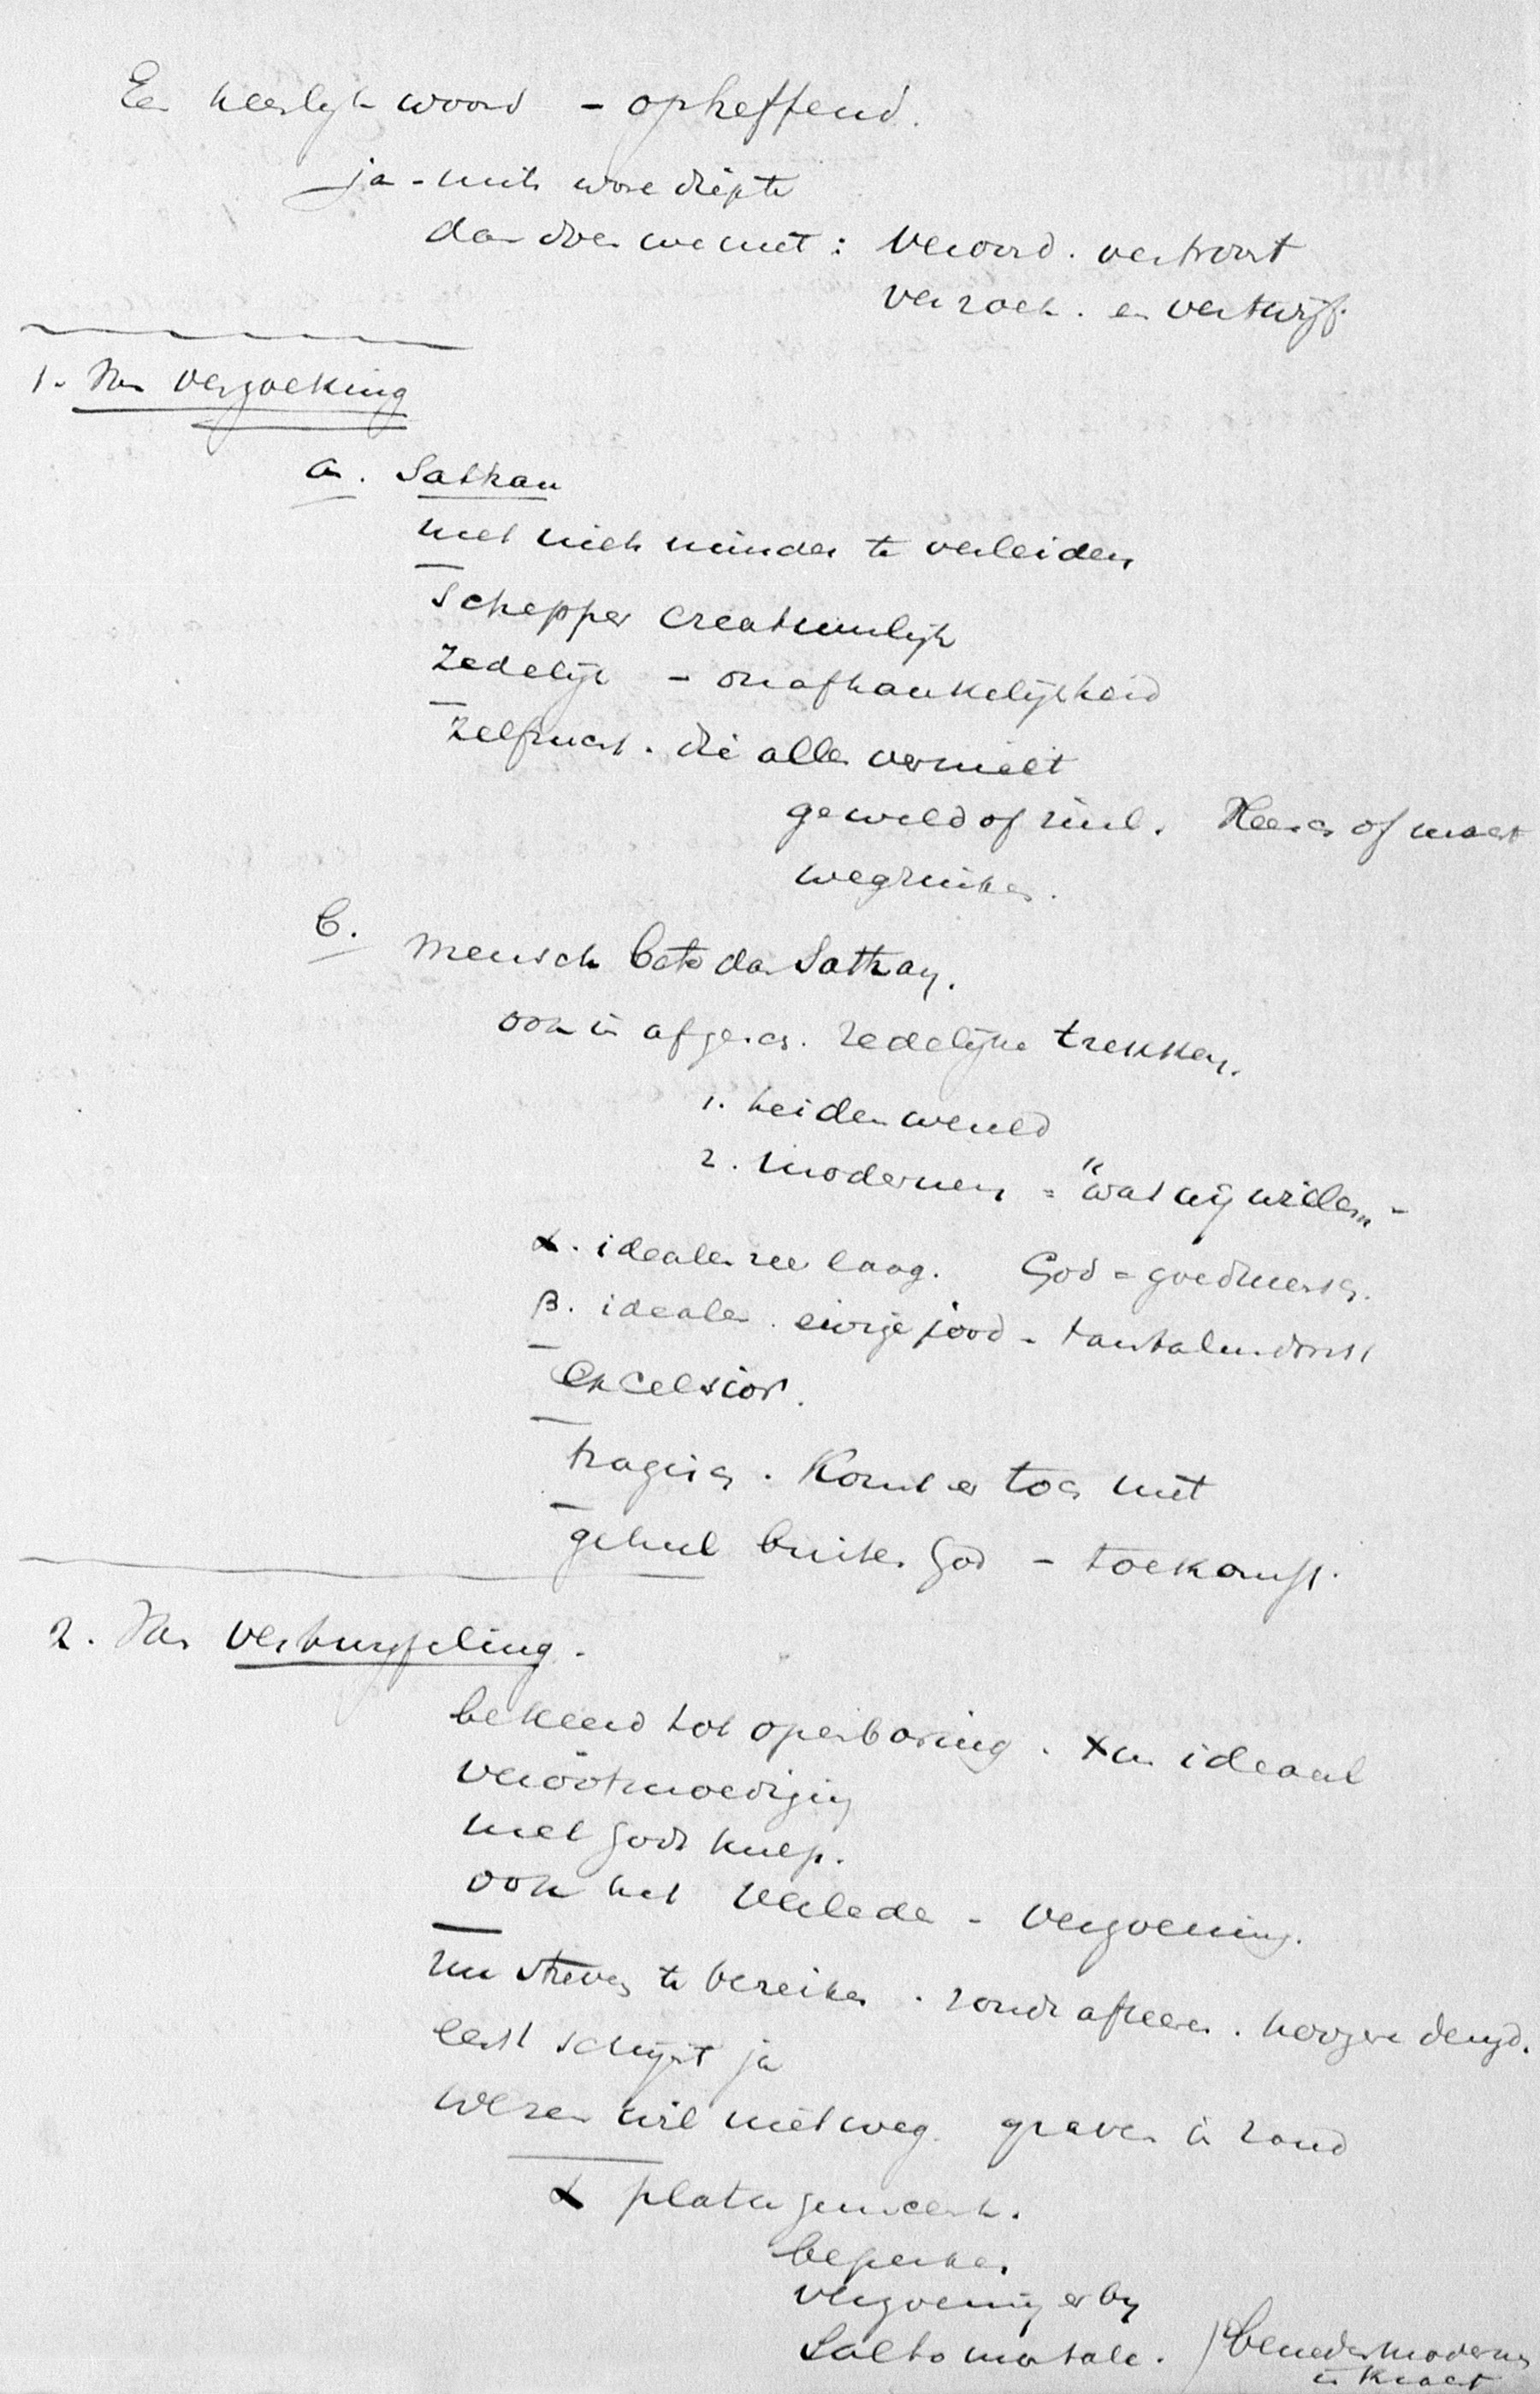 Een heerlijk woord - opheffend.
ja - mits ware diepte
dan doen we niet: veroord. vertroost
verzoek. en vertwijf.
1. Van verzoeking
a. Sathan
met niets minder te verleiden
Schepper creatuurlijk
Zedelijk - onafhankelijkheid
Zelfzucht. die alles vernielt
gewild of ziel. Heer of moet
wegzinken.
b. Mensch beter dan Sathan.
ook in afgez. zedelijke trekken.
1. heidenwereld
2. modernen = "wat wij willen" -
α. idealen zee laag. God = goed mensch.
β. idealen. eeuwige jood - tantalusdorst
Excelsior.
tragisch. Komt er toch niet
geheel buiten God - toekomst.
2. Van vertwijfeling.
bekeerd tot openbaring. Xus ideaal
verootmoediging
met Gods hulp.
ook het verleden - verzoening.
nu streven te bereiken. zonde afleeren. hoogere deugd.
eerst schijnt ja
wezen wil niet weg. graven in zand
α platen
beperken.
verzoening erbij
Salto mortale. beneden modernen
in kracht